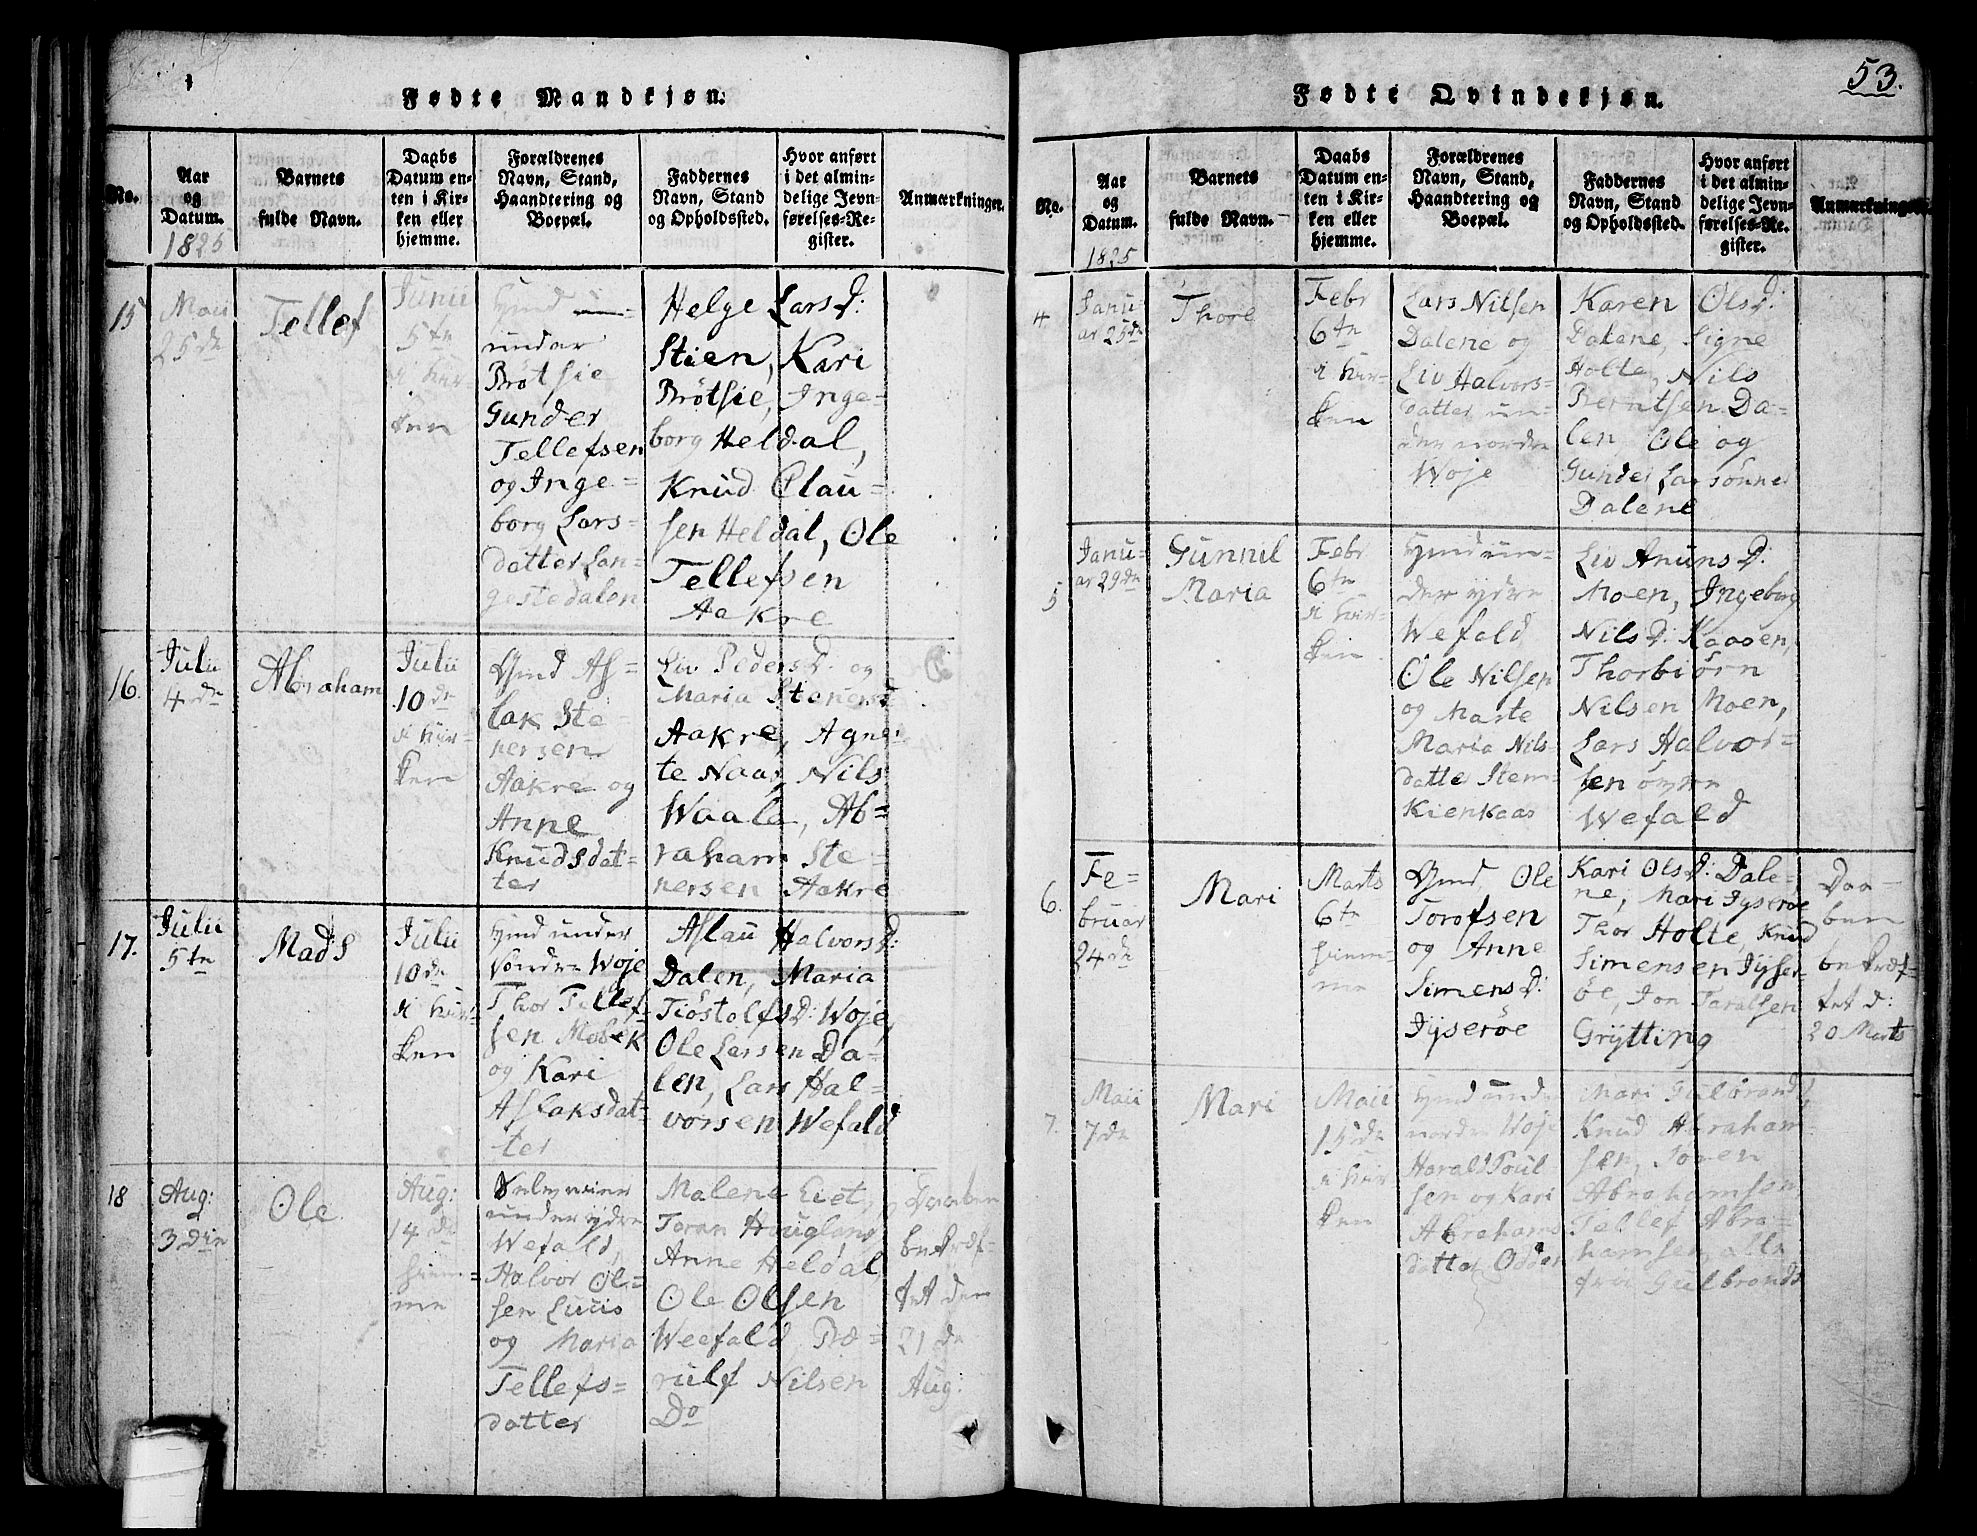 53.
Fødte Mandkjøn.
No.
Aar
og
Datum.
1825
Barnets
fulde Navn.
Daabs
Datum en-
ten i Kir-
ken eller
hjemme.
Forældrenes
Navn, Stand,
Haandtering og
Boepæl.
Faddernes
Navn, Stand
og Opholdssted.
Hvor anført
i det almin-
delige Jevn-
førelses-Re-
gister.
Anmærkninger.
15
Maii
25de
Tellef
Junii
5te
i Kir-
ken
under
Brøtsie
Gunder
Tellefsen
og Inge=
borg Lars-
datter Lan-
gestedalen
Helge LarsD:
Stien, Kari
Brøtsie, Inge=
borg Heldal,
Knud Clau=
sen Heldal, Ole
Tellefsen
Aakre
16.
Julii
4de
Abraham
Julii
10de
i Kir-
ken
Gmd As=
lak Ste=
nersen
Aakre og
Anne
Knudsdat=
ter
Liv PedersD: og
Maria StenersD
Aakre, Agne
te Naas, Nils
Waale, Ab=
raham Ste=
nersen Aakre
17.
Julii
5te
Mads
Julii
10de
i Kir-
ken
Gmd under
Søndre Woje
Thor Tellef-
sen Mobek
og Kari
Aslaksdat-
ter
Aslau HalvorsD:
Dalen, Maria
TiøstolfsD: Woje,
Ole Larsen Da=
len, Lars Hal=
vorsen Wefald
18
Aug:
3die
Ole
Aug:
14de
hiem=
me
under ydre
Wefald,
Halvor Ol=
sen Luiis
og Maria
Tellefs=
datter
Malene Eiet,
Toran Hougland
Anne Heldal,
Ole Olsen
Weefald, Bæ=
rulf Nilsen
Do
Daaben
bekræf=
tet den
21de
Aug:
Fødte Qvindekjøn.
No.
Aar
og
Datum.
1825
Barnets
fulde Navn.
Daabs
Datum en-
ten i Kir-
ken eller
hjemme.
Forældrenes
Navn, Stand,
Haandtering og
Boepæl.
Faddernes
Navn, Stand
og Opholdssted.
Hvor anført
i det almin-
delige Jevn-
førelses-Re-
gister.
Anmærkninger.
4
Janu-
ar 25de
Thore
Febr
6te
i Kir-
ken
Lars Nilsen
Dalene og
Liv Halvors-
datter un-
der nordre
Woje
Karen OlsD:
Dalene, Signe
Holte, Nils
Berntsen Da=
len, Ole og
Gunder Larsønner
Dalene
5
Janu=
ar 29de
Gunnil
Maria
Febr
6te
i Kir-
ken
Gmd un-
der ydre
Wefald
Ole Nilsen
og Marte
Maria Nils-
datte Stem-
kienkaas
Liv AnunsD:
Moen, Ingeborg
NilsD: Kaasen,
Thorbiørn
Nilsen Moen,
Lars Halvor=
sen øvre
Wefald
6.
Fe=
bruar
24de
Mari
Marts
6te
hiem=
me
Gmd Ole
Torofsen
og Anne
SimensD:
Jyserøe
Kari OlsD: Dale-
ne, Mari Jyserøe
Thor Holte, Knud
Simensen Jyser
øe, Jon Taralsen
Grytting
Daa-
ben
bekræf-
tet d:
20 Marts
7.
Maii
7de
Mari
Maii
15de
i Kir
ken
Gmd unde
nordre Woje
Harald Poul
sen og Kari
Abrahams
datter Odder
Mari Gulbrands
Knud Abraham-
sen, Søren
Abrahamsen
Tellef Abra=
hamsen, alle
fra Gulbrands